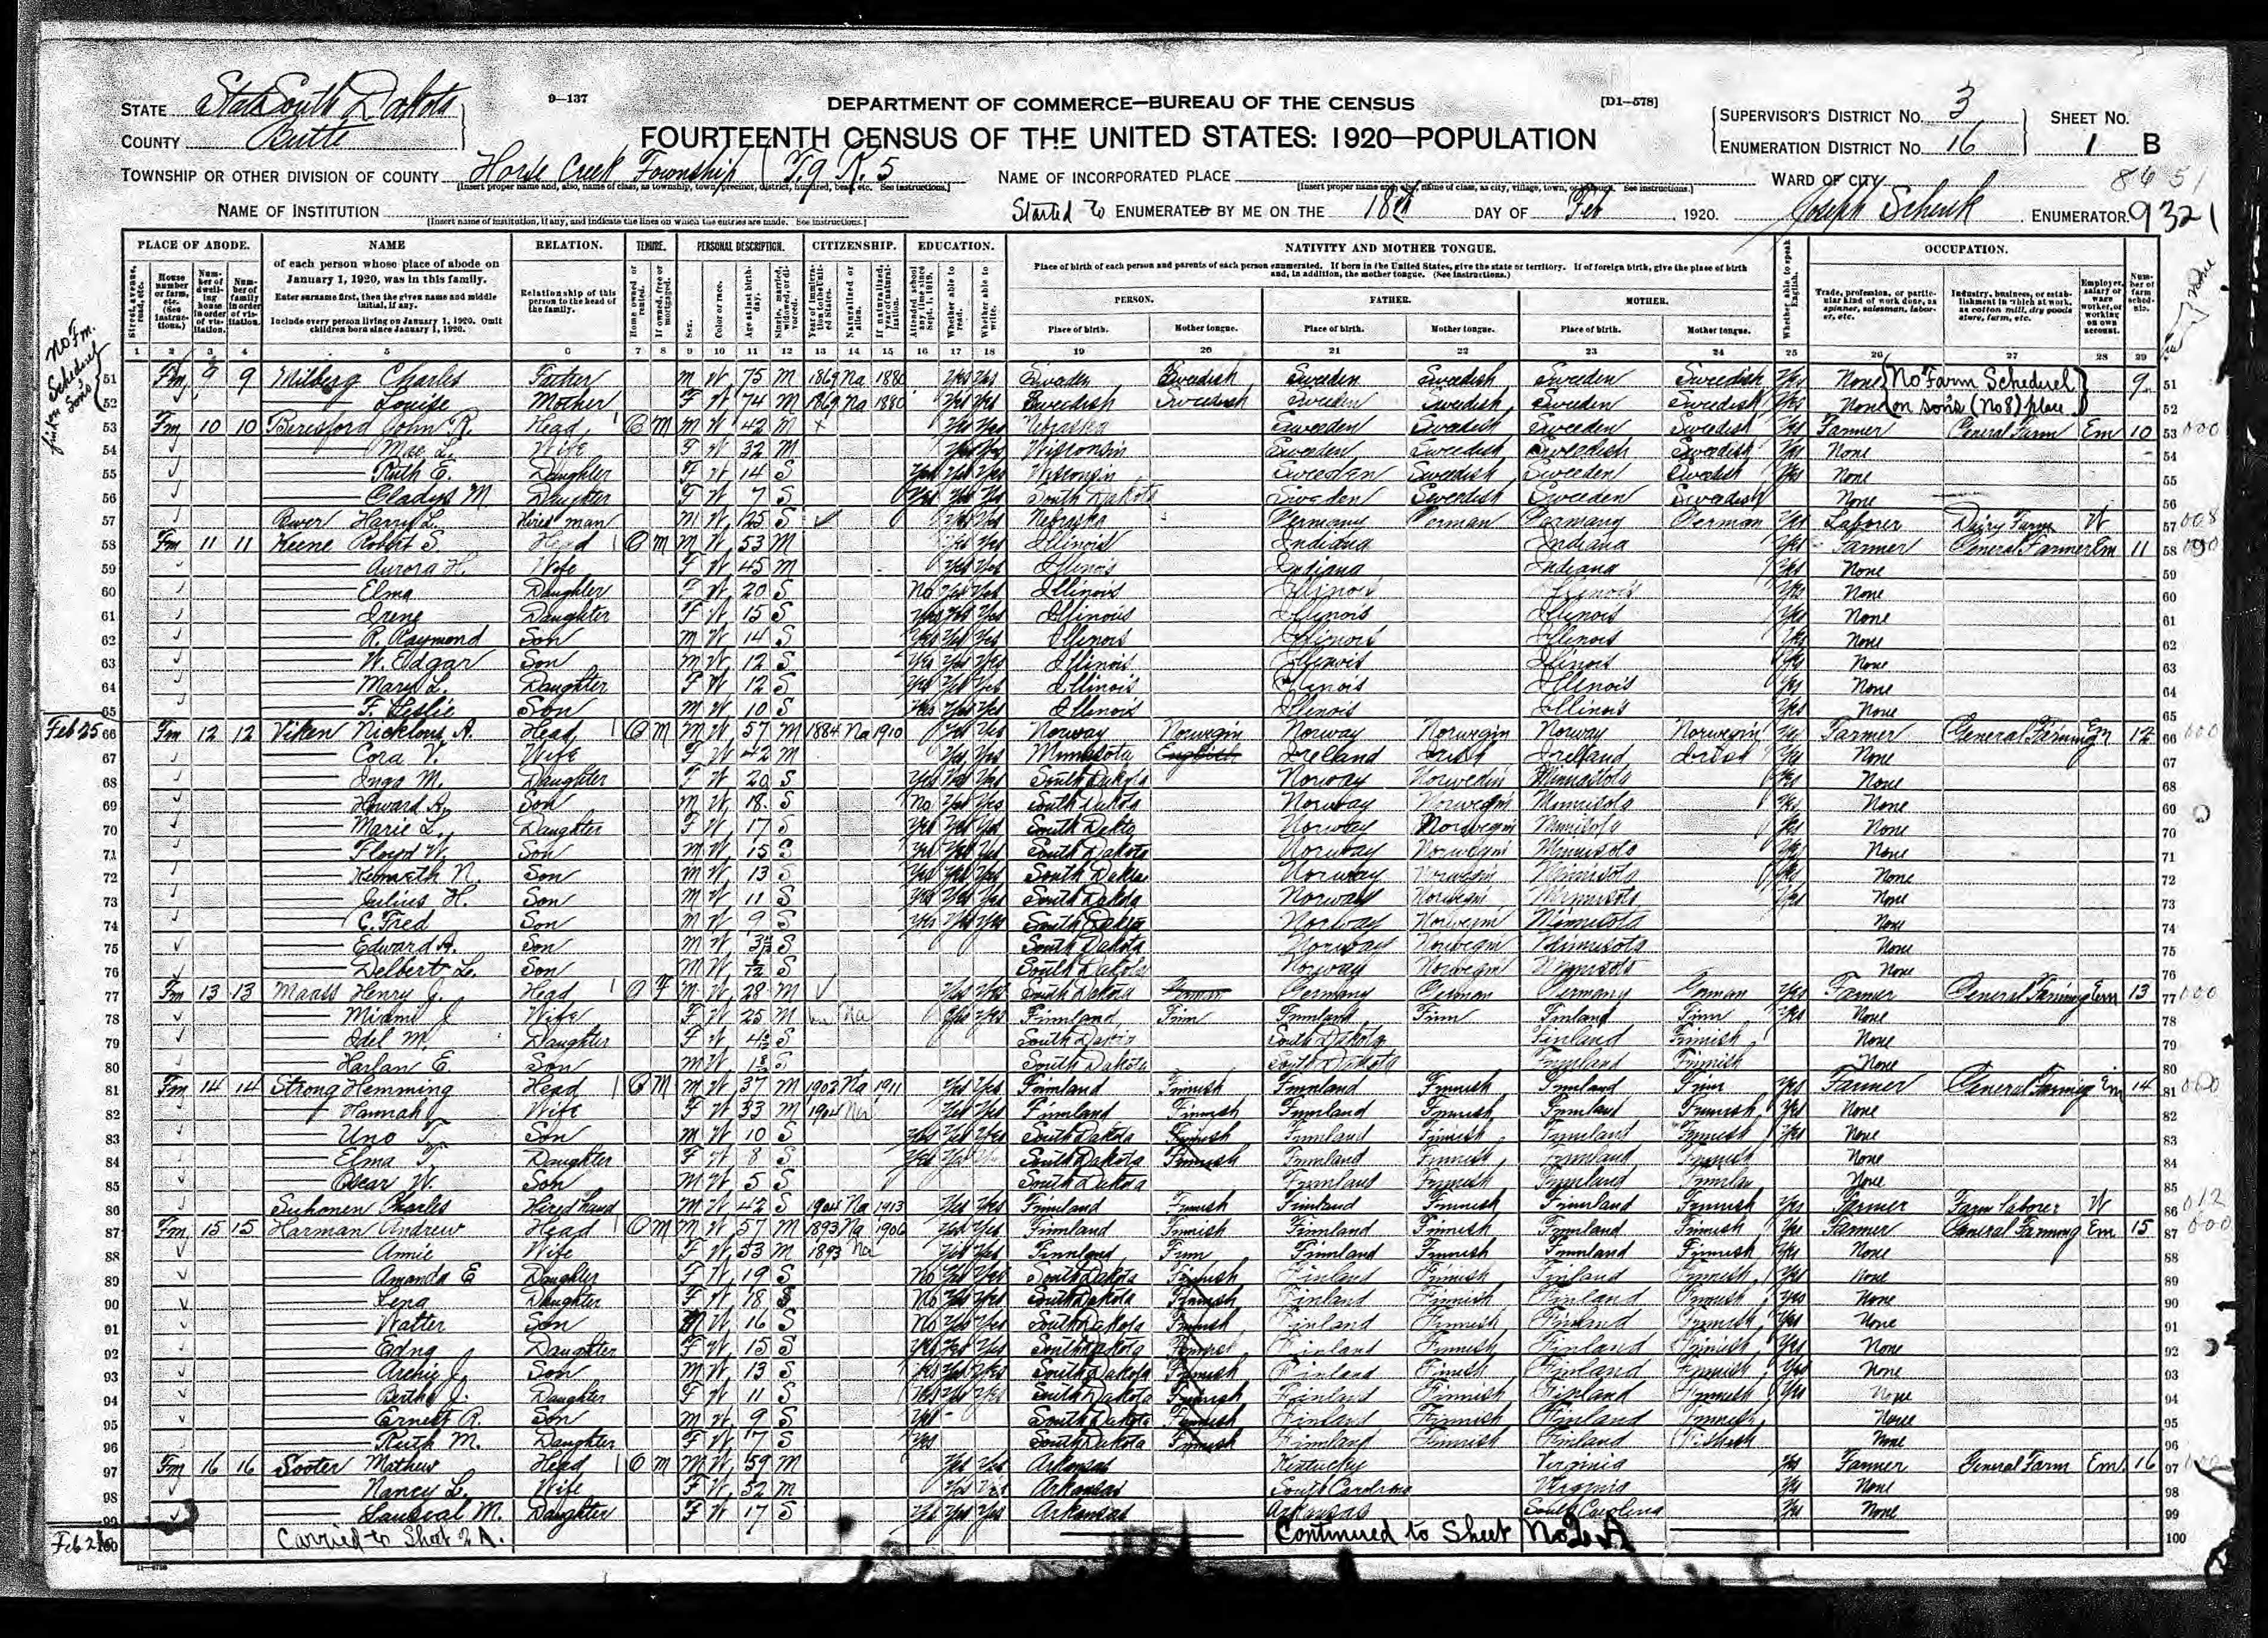 9—137
DEPARTMENT OF COMMERCE—BUREAU OF THE CENSUS
[D1-578]
STATE State South Dakota
COUNTY Butte
FOURTEENTH CENSUS OF THE UNITED STATES: 1920—POPULATION
SUPERVISOR'S DISTRICT No. 3
ENUMERATION DISTRICT No. 16
SHEET No. 1 B
TOWNSHIP OR OTHER DIVISION OF COUNTY Horse Creek Township T.9 R.5
NAME OF INCORPORATED PLACE
WARD OF CITY
8651
NAME OF INSTITUTION
Started to ENUMERATED BY ME ON THE 18th DAY OF Feb, 1920. Joseph Schenk ENUMERATOR.
9321
PLACE OF ABODE. NAME RELATION. TENURE. PERSONAL DESCRIPTION. CITIZENSHIP. EDUCATION. NATIVITY AND MOTHER TONGUE. OCCUPATION.
of each person whose place of abode on January 1, 1920, was in this family.
Enter surname first, then the given name and middle initial, if any.
Include every person living on January 1, 1920. Omit children born since January 1, 1920.
Relationship of this person to the head of the family.
Place of birth of each person and parents of each person enumerated. If born in the United States, give the state or territory. If of foreign birth, give the place of birth and, in addition, the mother tongue. (See instructions.)
PERSON. FATHER. MOTHER.
Place of birth. Mother tongue. Place of birth. Mother tongue. Place of birth. Mother tongue.
1 2 3 4 5 6 7 8 9 10 11 12 13 14 15 16 17 18 19 20 21 22 23 24 25 26 27 28 29
51 Fm 9 9 Milberg Charles Father M W 75 M 1869 Na 1880 Yes Yes Sweden Swedish Sweden Swedish Sweden Swedish Yes None No Farm Scheduel 9 51
52 Louise Mother F W 74 M 1869 Na 1880 Yes Yes Sweedish Swedish Sweden Swedish Sweden Swedish Yes None on sons (No 8) place 52
53 Fm 10 10 Beresford John R. Head O M M W 42 M Yes Yes Nebraska Sweeden Swedish Sweeden Swedish Yes Farmer General Farm Em 10 53
54 Mae L. Wife F W 32 M Yes Yes Wisconsin Sweeden Sweedish Sweedish Swedish Yes None 54
55 Ruth E. Daughter F W 14 S Yes Yes Yes Wisconsin Sweeden Swedish Sweeden Swedish Yes None 55
56 Gladys M Daughter F W 7 S South Dakota Sweden Sweedish Sweeden Sweedish None 56
57 Harry L. Hired man M W 25 S Yes Yes Nebraska Germany German Germany German Yes Laborer Dairy Farm W 57
58 Fm 11 11 Keene Robert S. Head O M M W 53 M Yes Yes Illinois Indiana Indiana Yes Farmer General Farmer Em 11 58
59 Aurora H. Wife F W 45 M Yes Yes Illinois Indiana Indiana Yes None 59
60 Elma Daughter F W 20 S No Yes Yes Illinois Illinois Illinois Yes None 60
61 Irene Daughter F W 15 S Yes Yes Yes Illinois Illinois Illinois Yes None 61
62 R. Raymond Son M W 14 S Yes Yes Yes Illinois Illinois Illinois Yes None 62
63 W. Edgar Son M W 12 S Yes Yes Yes Illinois Illinois Illinois Yes None 63
64 Mary L. Daughter F W 12 S Yes Yes Yes Illinois Illinois Illinois Yes None 64
65 F. Leslie Son M W 10 S Yes Yes Yes Illinois Illinois Illinois Yes None 65
Feb 25 66 Fm 12 12 Viken Nicklous A. Head O M M W 57 M 1884 Na 1910 Yes Yes Norway Norwegin Norway Norwegin Norway Norwegin Yes Farmer General Farming Em 12 66
67 Cora V. Wife F W 42 M Yes Yes Minnesota English Irelland Irish Irelland Irish Yes None 67
68 Inga M. Daughter F W 20 S Yes Yes Yes South Dakota Norway Norwegin Minnisota None 68
69 Howard R. Son M W 18 S No Yes Yes South Dakota Norway Norwegin Minnisota Yes None 69
70 Marie L. Daughter F W 17 S Yes Yes Yes South Dakta Norway Norwegin Minnisota Yes None 70
71 Floyd W. Son M W 15 S Yes Yes Yes South Dakota Norway Norwegin Minnisota Yes None 71
72 Kenneth N. Son M W 13 S Yes Yes Yes South Dakota Norway Norwegin Minnisota Yes None 72
73 Julius H. Son M W 11 S Yes Yes Yes South Dakota Norway Norwegin Minnisota Yes None 73
74 C. Fred Son M W 9 S Yes Yes Yes South Dakota Norway Norwegin Minnisota None 74
75 Edward A. Son M W S South Dakota Norway Norwegin Minnisota None 75
76 Delbert L. Son M W S South Dakota Norway Norwegin Minnisota None 76
77 Fm 13 13 Maass Henry J. Head O F M W 28 M Yes Yes South Dakota German Germany German Germany German Yes Farmer General Farming Em 13 77
78 J Wife F W 25 M Na Yes Yes Finnland Finn Finnland Finn Finland Finn Yes None 78
79 Idel M. Daughter F W S South Dakota South Dakota Finland Finnish None 79
80 Harlan E. Son M W S South Dakota South Dakota Finnland Finnish None 80
81 Fm 14 14 Strong Hemming Head O M M W 37 M 1902 Na 1911 Yes Yes Finnland Finnish Finnland Finnish Finnland Finn Yes Farmer General Farming Em 14 81
82 Hannah Wife F W 33 M 1904 Na Yes Yes Finnland Finnish Finnland Finnish Finnland Finnish Yes None 82
83 Uno T. Son M W 10 S Yes Yes Yes South Dakota Finnish Finnland Finnish Finnland Finnish Yes None 83
84 Elma T. Daughter F W 8 S Yes Yes South Dakota Finnish Finnland Finnish Finnland Finnish None 84
85 Oscar W. Son M W 5 S South Dakota Finnland Finnish Finnland None 85
86 Suhonen Charles Hired hand M W 42 S 1904 Na 1913 Yes Yes Finnland Finnish Finland Finnish Finnland Finnish Yes Farmer Farm Laborer W 86
87 Fm 15 15 Harman Andrew Head O M M W 57 M 1893 Na 1906 Yes Yes Finnland Finnish Finnland Finnish Finnland Finnish Yes Farmer General Farming Em 15 87
88 Annie Wife F W 53 M 1893 Na Yes Yes Finnland Finn Finnland Finnish Finnland Finnish Yes None 88
89 Amanda E Daughter F W 19 S No Yes Yes South Dakota Finnish Finland Finnish Finland Finnish Yes None 89
90 Lena Daughter F W 18 S No Yes Yes South Dakota Finnish Finland Finnish Finland Finnish Yes None 90
91 Walter Son M W 16 S No Yes Yes South Dakota Finnish Finland Finnish Finland Finnish Yes None 91
92 Edna Daughter F W 15 S Yes Yes Yes South Dakota Finnish Finland Finnish Finland Finnish Yes None 92
93 Archie J Son M W 13 S Yes Yes Yes South Dakota Finnish Finland Finnish Finland Finnish Yes None 93
94 Bertha J. Daughter F W 11 S Yes Yes Yes South Dakota Finnish Finland Finnish Finland Finnish Yes None 94
95 Ernest R. Son M W 9 S Yes South Dakota Finnish Finland Finnish Finland Finnish None 95
96 Ruth M. Daughter F W 7 S Yes South Dakota Finnish Finnland Finnish Finland None 96
97 Fm 16 16 Sooter Mathew Head O M M W 59 M Yes Yes Arkansas Kentucky Virginia Yes Farmer General Farm Em 16 97
98 Nancy L. Wife F W 52 M Yes Yes Arkansas South Carolina Virginia Yes None 98
99 M. Daughter F W 17 S Yes Yes Yes Arkansas Arkansas South Carolina Yes None 99
100 Carried to Sheet 2 A. Continued to Sheet No 2 A 100